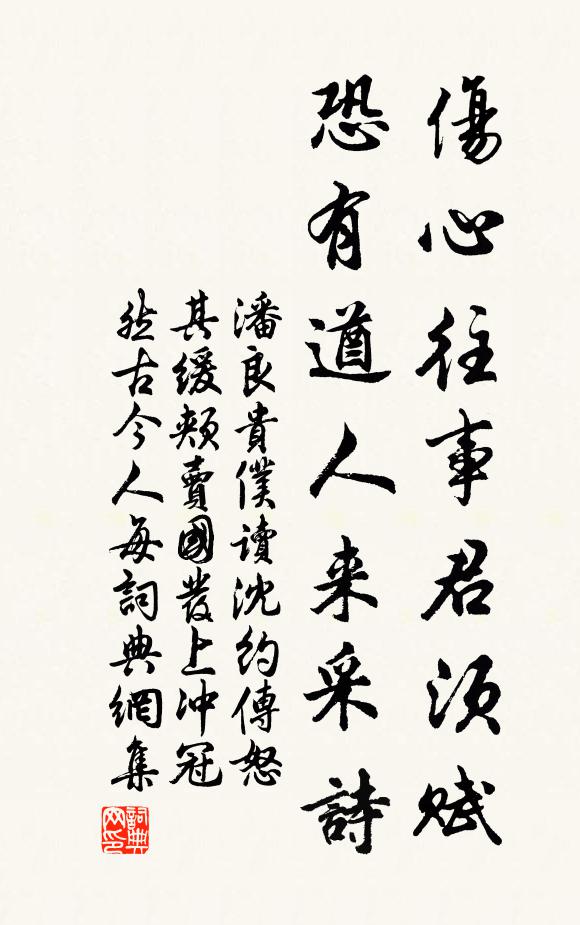 傷心往事君須賦
恐有遒人来采詩
潘良貴僕讀沈約傳怒
其緩頰賣國發上沖冠
然古今人每詞典網集
詞典网印